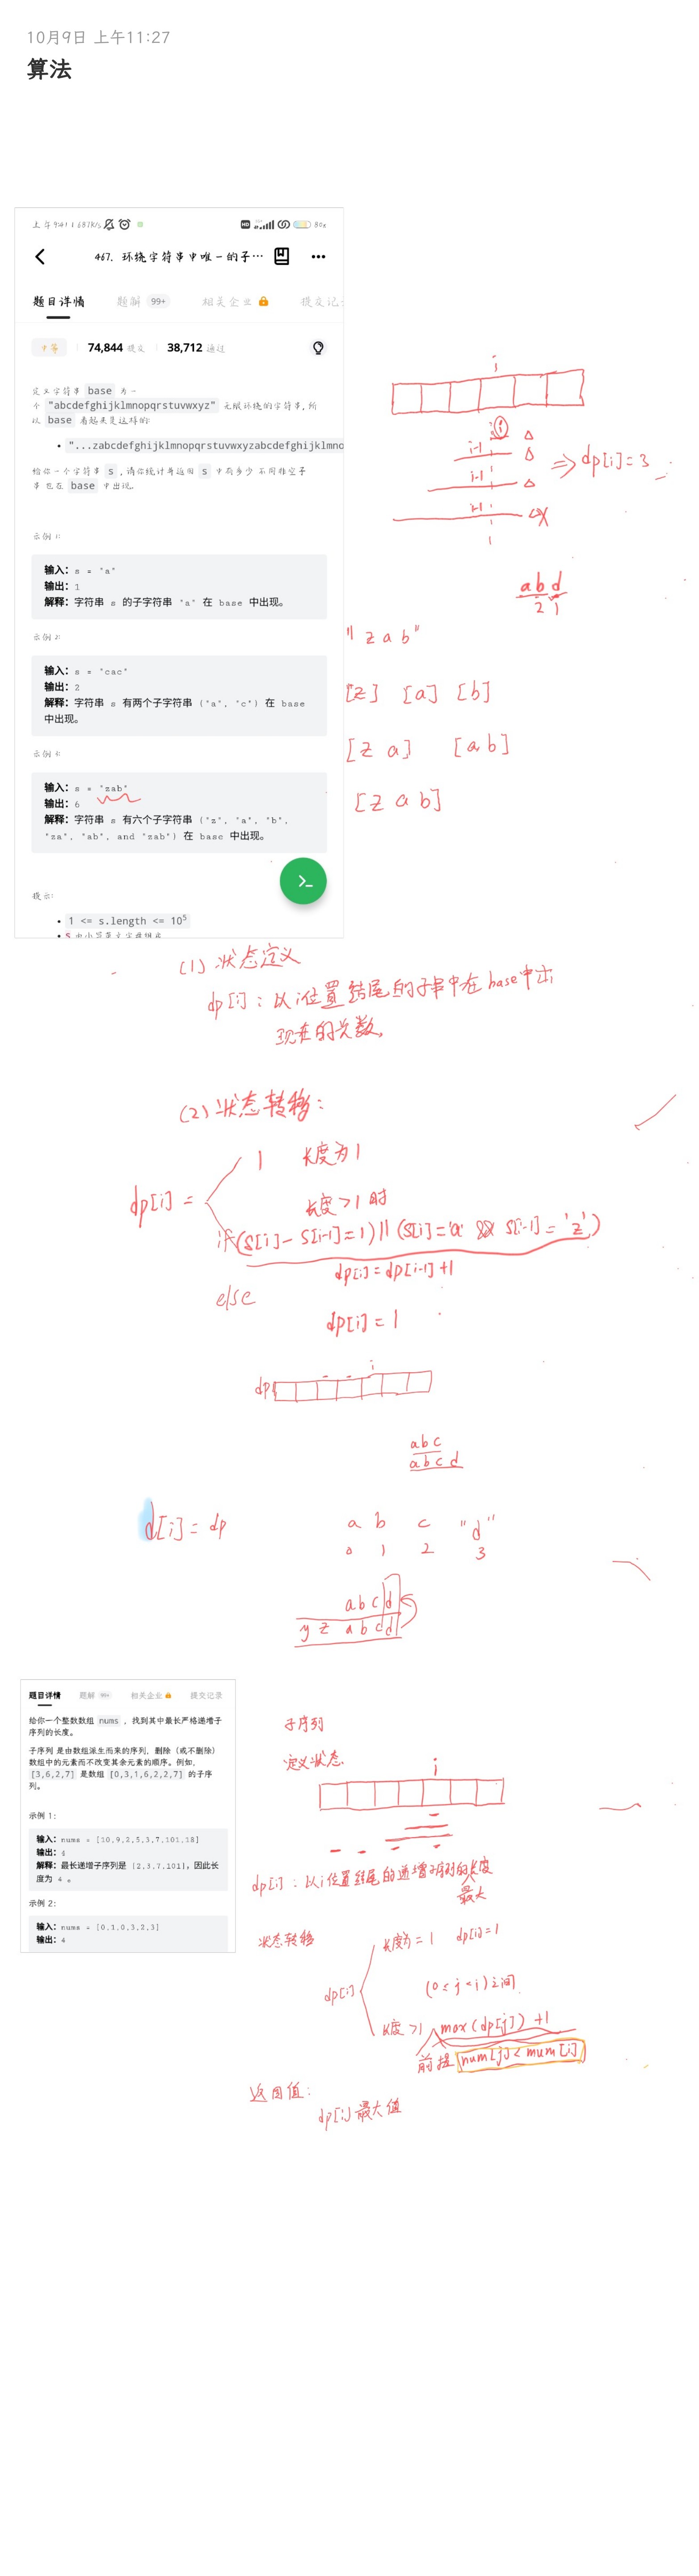 10月9日 上午11:27
算法
上午9:41 | 687K/s
HD
80%
467. 环绕字符串中唯一的子…
题目详情 题解 99+ 相关企业 提交记录
中等 74,844 提交 38,712 通过
定义字符串 base 为一
个 "abcdefghijklmnopqrstuvwxyz" 无限环绕的字符串，所
以 base 看起来是这样的:
• "...zabcdefghijklmnopqrstuvwxyzabcdefghijklmno
给你一个字符串 s ，请你统计并返回 s 中有多少 不同非空子
串 也在 base 中出现。
示例 1:
输入：s = "a"
输出：1
解释：字符串 s 的子字符串 "a" 在 base 中出现。
示例 2:
输入：s = "cac"
输出：2
解释：字符串 s 有两个子字符串 ("a", "c") 在 base
中出现。
示例 3:
输入：s = "zab"
输出：6
解释：字符串 s 有六个子字符串 ("z", "a", "b",
"za", "ab", and "zab") 在 base 中出现。
提示:
• 1 <= s.length <= 10⁵
• s 由小写英文字母组成
i
i
i-1
i-1
i-1
=> dp[i]=3
abd
2 1
"z a b"
[z] [a] [b]
[z a] [a b]
[z a b]
(1) 状态定义
dp[i]：以i位置结尾的子串中在base中出
现在的次数,
(2) 状态转移：
dp[i] =
1 长度为1
长度>1时
if(s[i]-s[i-1]=1)||(s[i]='a' && s[i-1]='z')
dp[i]=dp[i-1]+1
else
dp[i]=1
i
dp
abc
abcd
d[i]=dp
a b c "d"
0 1 2 3
abcd
y z abcd
题目详情 题解 99+ 相关企业 提交记录
给你一个整数数组 nums ，找到其中最长严格递增子
序列的长度。
子序列 是由数组派生而来的序列，删除（或不删除）
数组中的元素而不改变其余元素的顺序。例如，
[3,6,2,7] 是数组 [0,3,1,6,2,2,7] 的子序
列。
示例 1：
输入：nums = [10,9,2,5,3,7,101,18]
输出：4
解释：最长递增子序列是 [2,3,7,101]，因此长
度为 4 。
示例 2：
输入：nums = [0,1,0,3,2,3]
输出：4
子序列
定义状态
i
dp[i]：以i位置结尾的递增子序列的长度
最大
状态转移
dp[i]
长度为=1 dp[i]=1
(0≤j<i)之间
长度>1 max(dp[j])+1
前提 num[j]<mum[i]
返回值：
dp[i]最大值